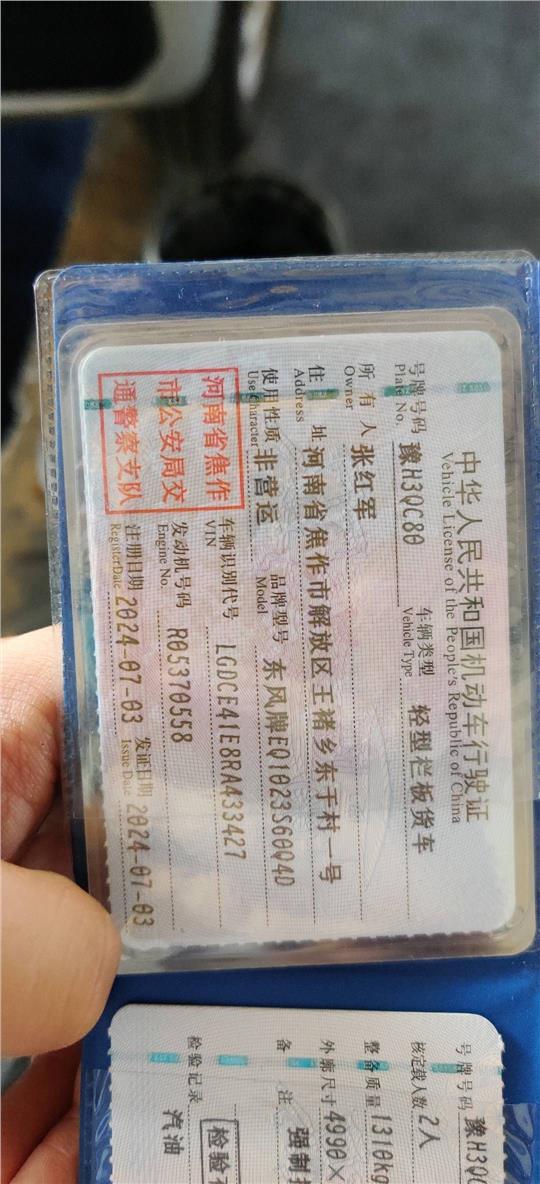 中华人民共和国机动车行驶证
Vehicle License of the People's Republic of China
号牌号码 豫H3QC80 车辆类型 轻型栏板货车
Plate No. Vehicle Type
所有人 张红军
Owner
住址 河南省焦作市解放区王褚乡东于村一号
Address
使用性质 非营运 品牌型号 东风牌EQ1023S60Q4D
Use Character Model
河南省焦作
市公安局交
通警察支队
车辆识别代号 LGDCE41E8RA433427
VIN
发动机号码 R05370558
Engine No.
注册日期 2024-07-03 发证日期 2024-07-03
Register Date Issue Date
号牌号码 豫H3Q
核定载人数 2人
整备质量 1310kg
外廓尺寸 4990×
备注 强制
检验记录 检验
汽油